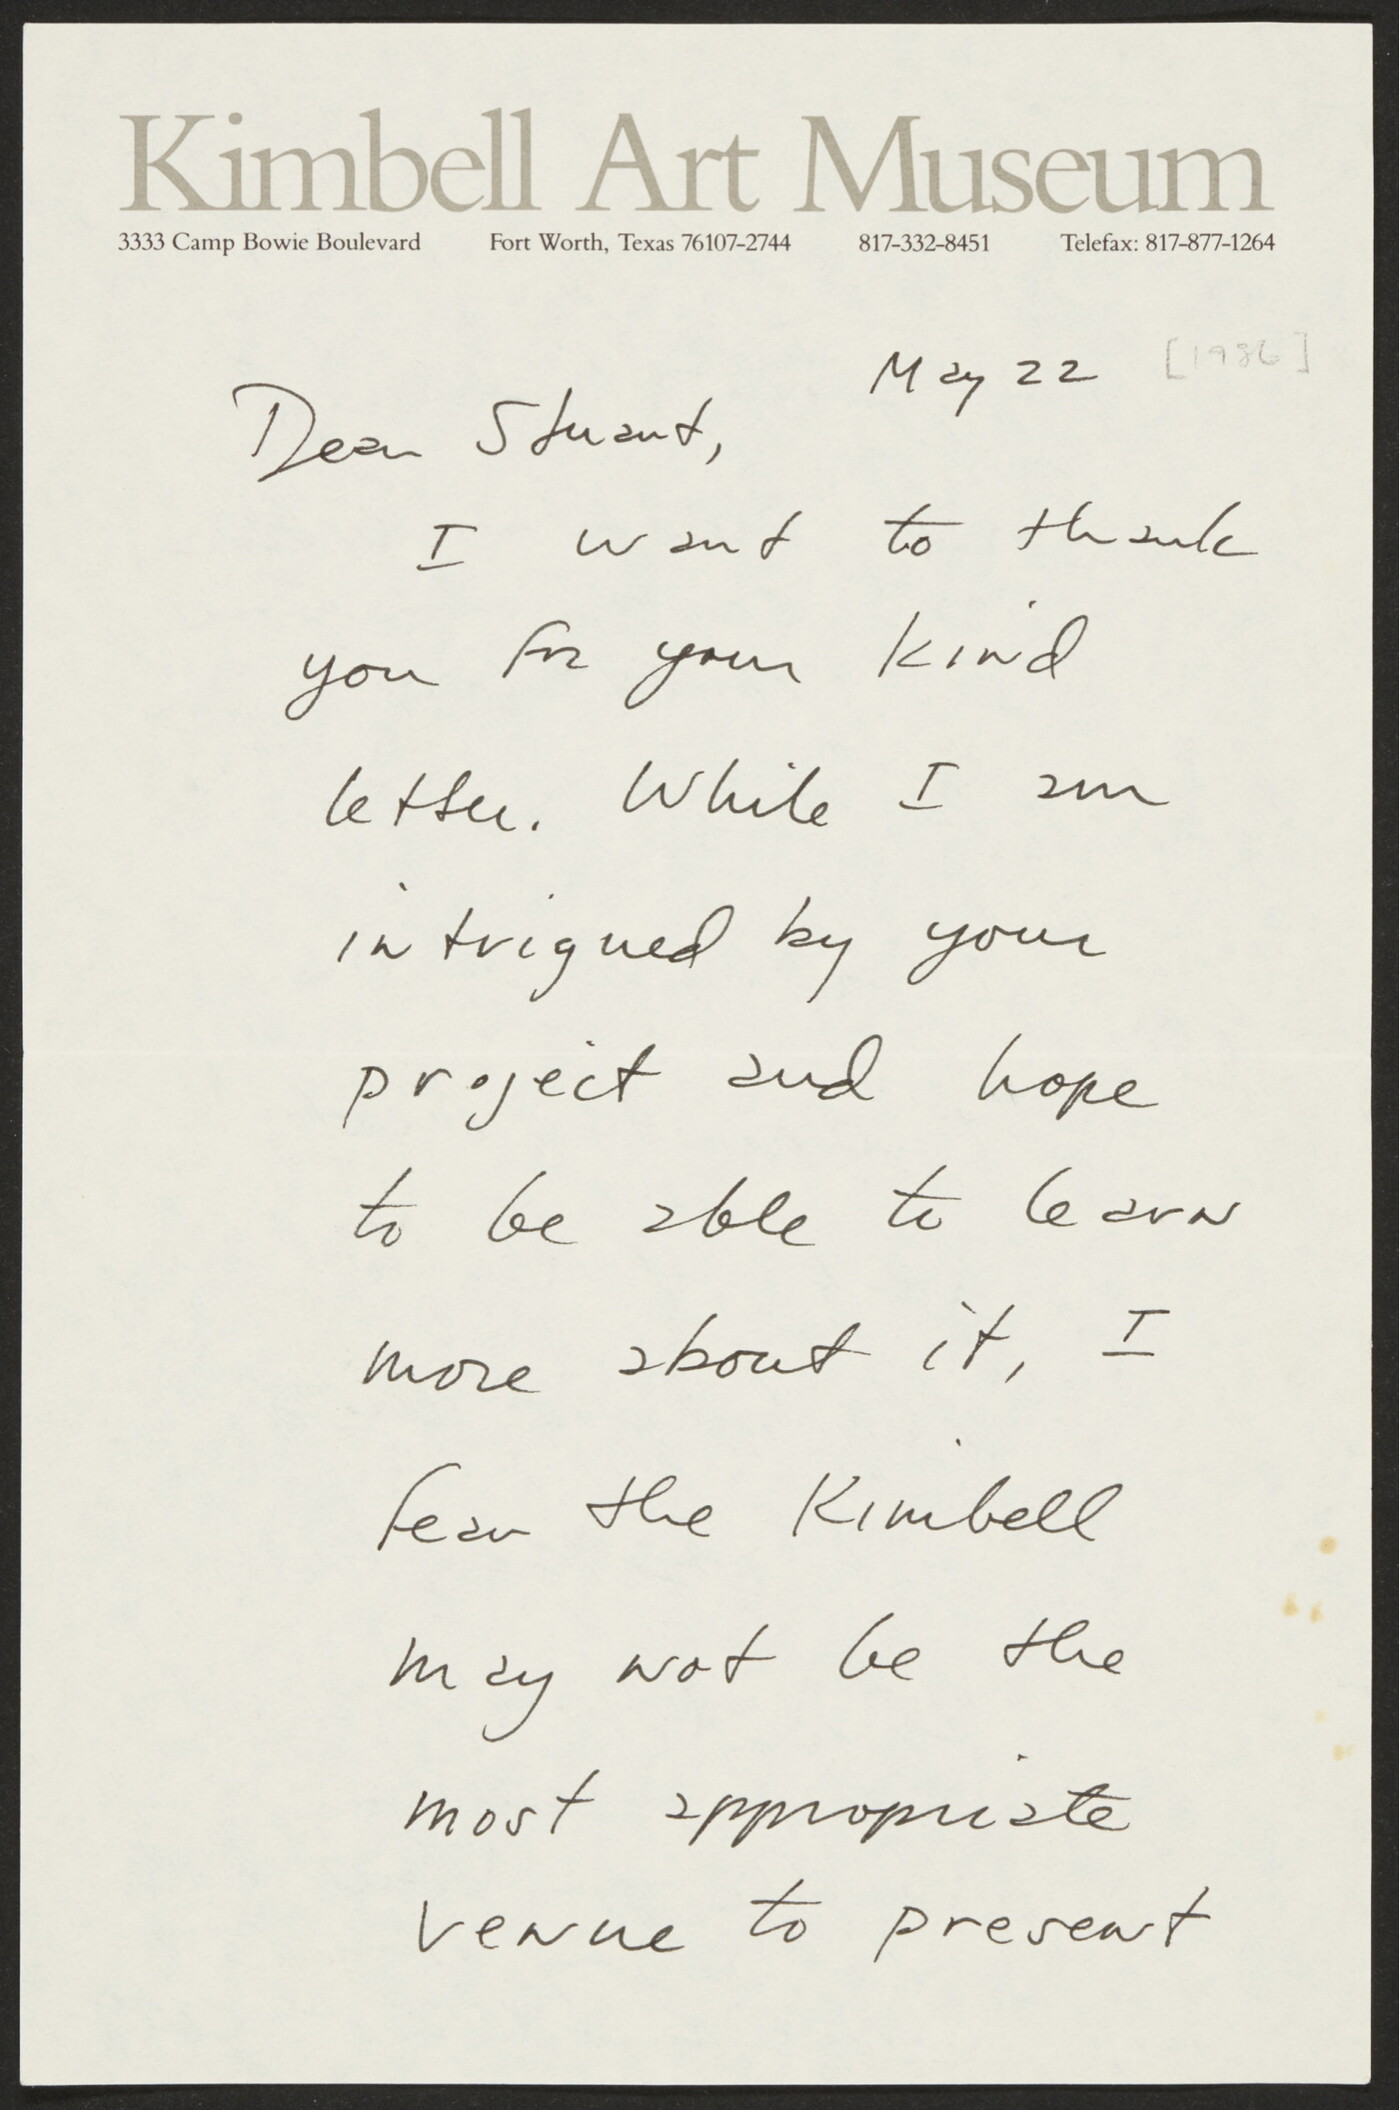 Kimbell Art Museum
3333 Camp Bowie Boulevard Fort Worth, Texas 76107-2744 817-332-8451 Telefax: 817-877-1264
May 22 [1986]
Dear Stuart,
I want to thank
you for your kind
letter. While I am
intrigued by your
project and hope
to be able to learn
more about it, I
fear the Kimbell
may not be the
most appropriate
venue to present